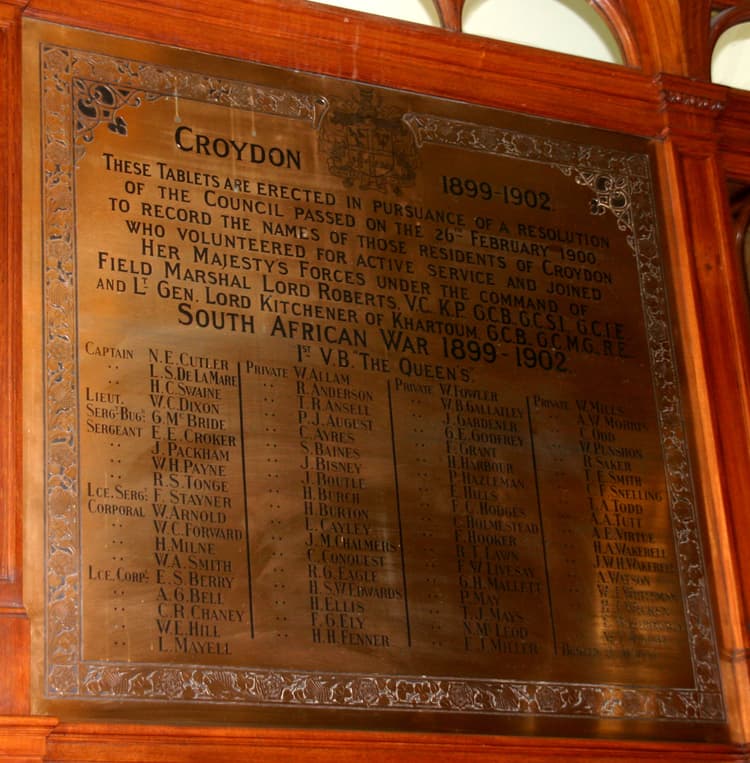 CROYDON 1899-1902.
THESE TABLETS ARE ERECTED IN PURSUANCE OF A RESOLUTION
OF THE COUNCIL PASSED ON THE 26TH FEBRUARY 1900.
TO RECORD THE NAMES OF THOSE RESIDENTS OF CROYDON
WHO VOLUNTEERED FOR ACTIVE SERVICE AND JOINED
HER MAJESTY'S FORCES UNDER THE COMMAND OF
FIELD MARSHAL LORD ROBERTS, V.C. K.P. G.C.B. G.C.S.I. G.C.I.E.
AND LT GEN. LORD KITCHENER OF KHARTOUM, G.C.B. G.C.M.G. R.E.
SOUTH AFRICAN WAR 1899-1902.
1ST V.B. "THE QUEEN'S".
CAPTAIN N.E. CUTLER
" L.S. DE LA MARE
" H.C. SWAINE
LIEUT. W.C. DIXON
SERGT-BUGR G. MC BRIDE
SERGEANT E.E. CROKER
" J. PACKHAM
" W.H. PAYNE
" R.S. TONGE
LCE. SERGT F. STAYNER
CORPORAL W. ARNOLD
" W.C. FORWARD
" H. MILNE
" W.A. SMITH
LCE. CORPL E.S. BERRY
" A.G. BELL
" C.R. CHANEY
" W.E. HILL
" L. MAYELL
PRIVATE W. ALLAM
" R. ANDERSON
" T.R. ANSELL
" P.J. AUGUST
" C. AYRES
" S. BAINES
" J. BISNEY
" J. BOUTLE
" H. BURCH
" H. BURTON
" L. CAYLEY
" J.M. CHALMERS
" C. CONQUEST
" R.G. EAGLE
" H.S.W. EDWARDS
" H. ELLIS
" F.G. ELY
" H.H. FENNER
PRIVATE W. FOWLER
" W.B. GALLATLEY
" J. GARDENER
" G.E. GODFREY
" F. GRANT
" H. HARBOUR
" P. HAZLEMAN
" E. HILLS
" F.C. HODGES
" C. HOLMESTEAD
" F. HOOKER
" R.T. LAWN
" F.W. LIVESAY
" G.H. MALLETT
" P. MAY
" T.J. MAYS
" N. MC LEOD
" E.J. MILLER
PRIVATE W. MILLS
" A.W. MORRIS
" C. ODD
" W. PUNSHON
" R. SAKER
" F.E. SMITH
" C.F. SNELLING
" T.A. TODD
" A.A. TUTT
" A.E. VIRTUE
" H.A. WAKERELL
" J.W.H. WAKERELL
" A. WATSON